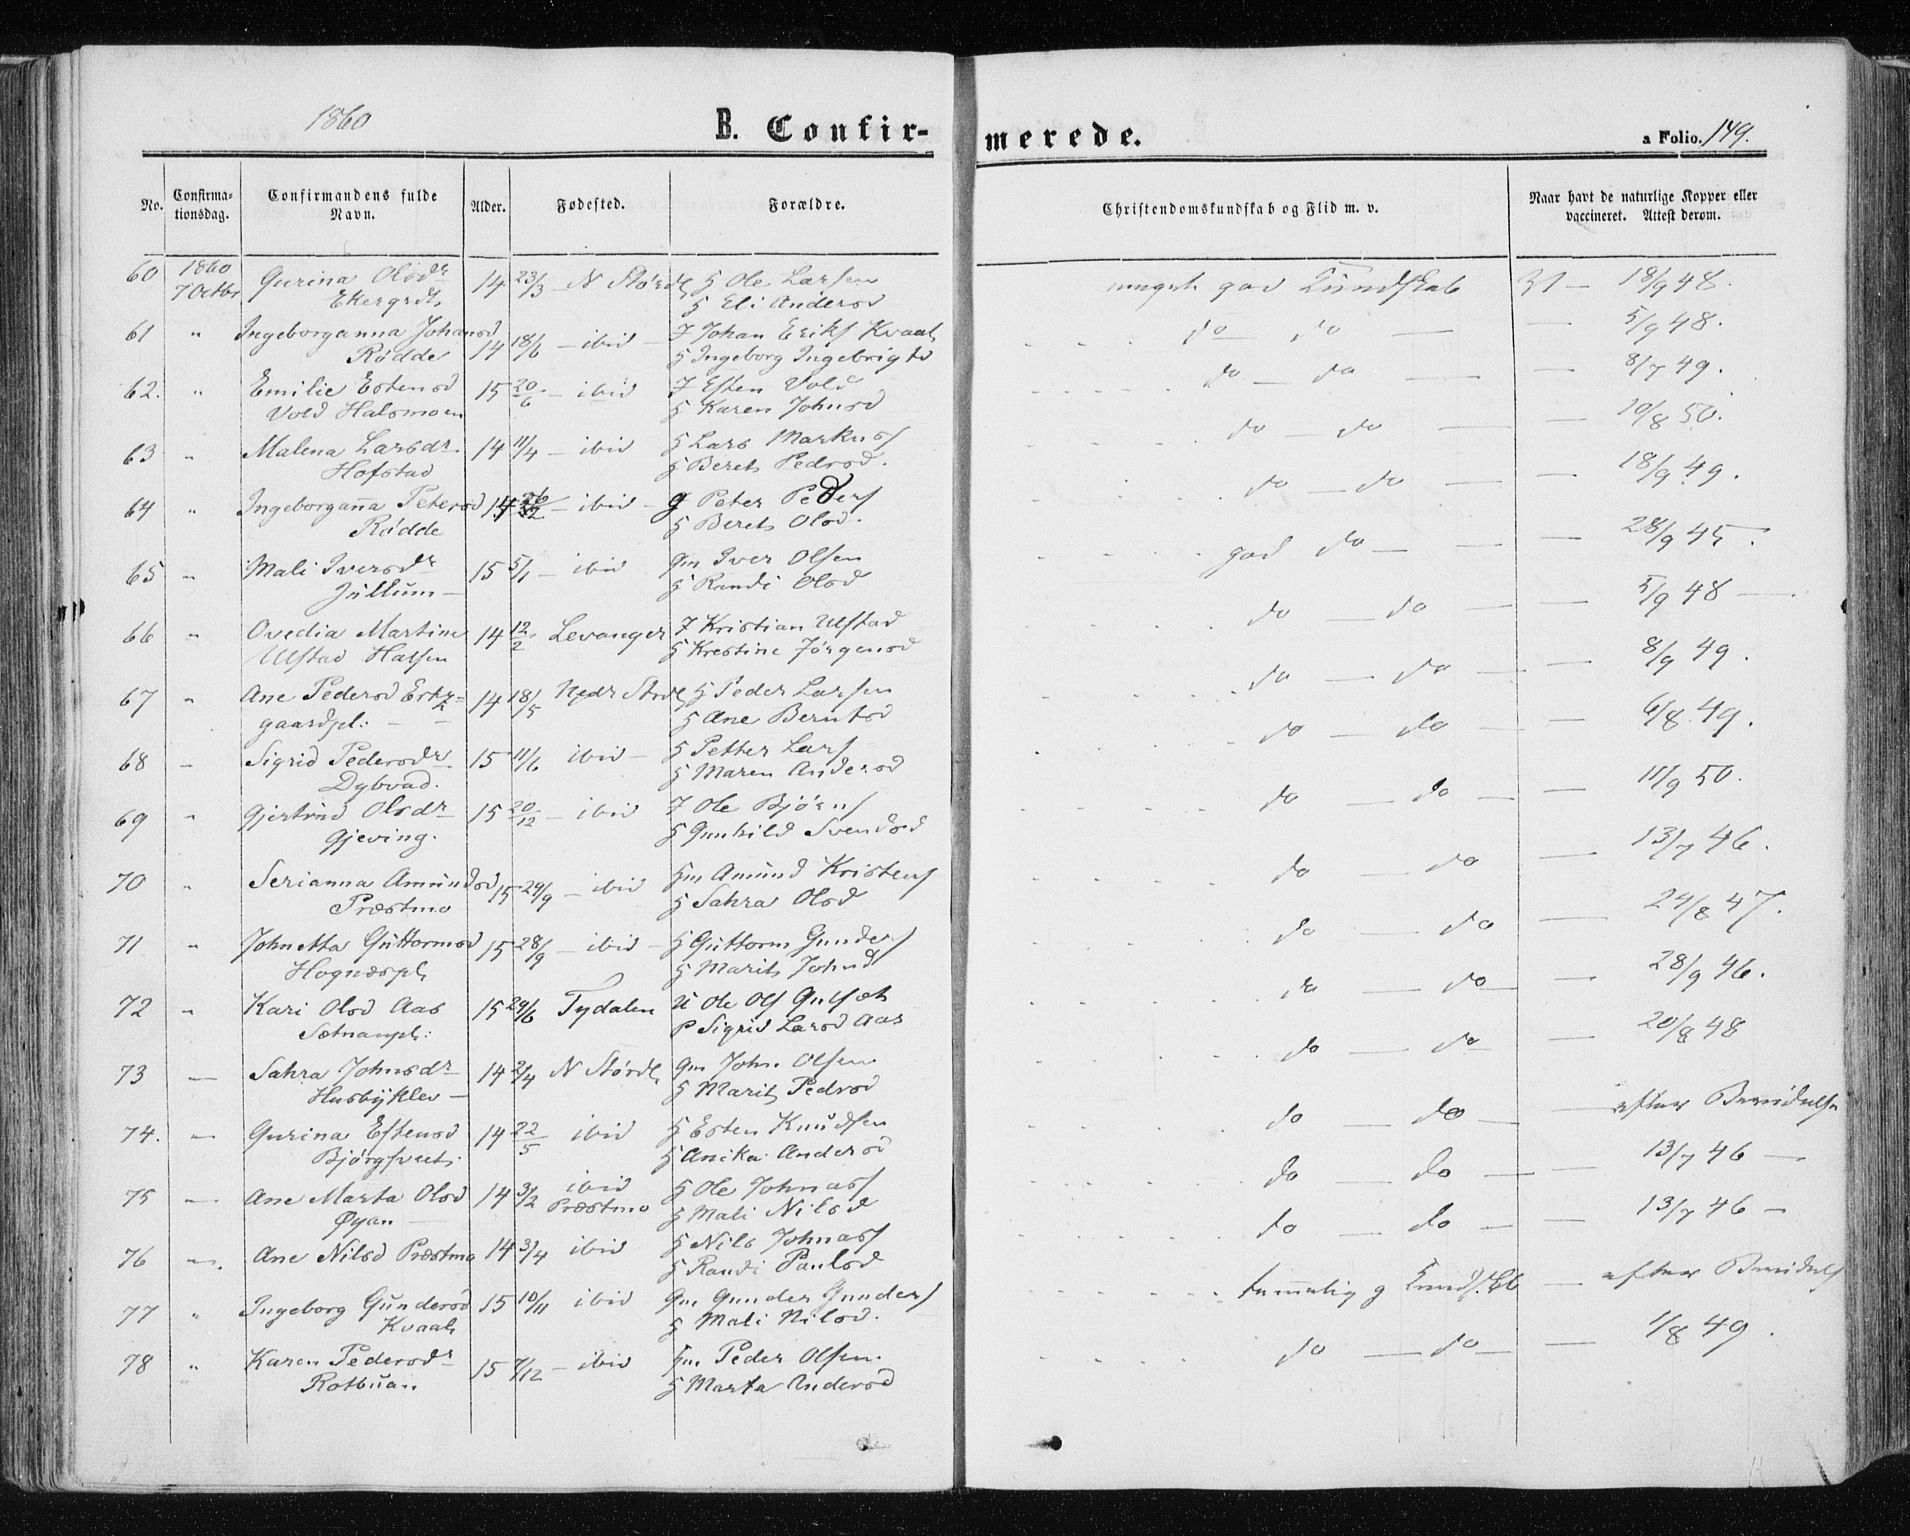 1860
B. Confir-
merede.
a Folio. 149.
No.
Confirma-
tionsdag.
Confirmandens fulde
Navn.
Alder.
Fødested.
Forældre.
Christendomskundskab og Flid m. v.
Naar havt de naturlige Kopper eller
vaccineret. Attest derom.
60 1860 Gurina Olsdr 14 23/3 — N Størdl Ole Larsen meget god Kundskab — 18/9 48.
7 Octbr Eli Andersd
61 " Ingeborganna Johansd 14 18/6 — ibid — Johan Eriks Kvaal do do — — 5/9 48.
Rødde Ingeborg Ingebrigtsd
62. " Emilie Estensd 15 20/6 — ibid Esten Vold do — do — — 8/7 49.
Vold Halsmoen Karen Johnsd
63 " Malena Larsdr. 14 11/4 — ibid Lars Markuss do — do — — 10/8 50.
Hofstad Berets Pedrsd.
64 " Ingeborganna Petersd — ibid — Peter Peders do — do — — 18/9 49.
Rødde Berets Olsd.
65 " Mali Iversdr 15 5/1 — ibid Gm Iver Olsen god do — — — 28/9 45.
Jullum — Randi Olsd
66 " Ovedia Martine 14 12/2 Levanger Kristian Ulstad do — do — — 5/9 48 —
Ulstad Halsen Krestine Jørgensd
67 " Ane Pedersd 14 18/5 Nedr Stordl Peder Larsen do — do — — 8/9 49.
gaardpl: — — Ane Berntsd
68 — Sigrid Pedersdr. 15 11/6 ibid — Petter Lars do — do — — 6/8 49.
Dybvad. Maren Andersd
69 " Gjertrud Olsdr 15 20/12 — ibid Ole Bjørns do — do — — 11/9 50.
Gjeving. Gunhild Svendsd
70 " Serianna Amundsd 15 29/9 — ibid Hm Amund Kristens do — do — 13/7 46.
Præstmo Sahra Olsd
71 " Johnetta Guttormsd 15 28/9 — ibid — Guttorm Gunders do — do — 24/8 47.
Hognæspl Marits Johnsd
72 " Kari Olsd Aas 15 29/6 Tydalen U Ole Ols do — do — — 28/9 46.
Sætnanpl: P Sigrid Larsd Aas
73 — Sahra Johnsdr 14 2/4 N Størdl Gm John Olsen do — do — 20/8 48
Husbyklev — Marits Pedrsd
74. — Gurina Estensd 14 22/5 ibid Esten Knudsen do — do — — efter
Anika Andersd
75 — Ane Marta Olsd 14 3/2 ibid Ole Johnass do — do — — 13/7 46 —
Øyan — Præstmo Mali Nilsd
76 —. Ane Nilsd Præstmo 14 3/4 ibid Nils Johnass do — do — — 13/7 46 —
Randi Paulsd
77 " Ingeborg Gundersd 15 10/11 ibid Gm Gunder Gunders temmelig g — efter
Kvaals Mali Nilsd.
78 " Karen Pedersdr 15 7/12 — ibid Hm Peder Olsen. do — do — — 1/8 49.
Rotbuan. Marta Andersd